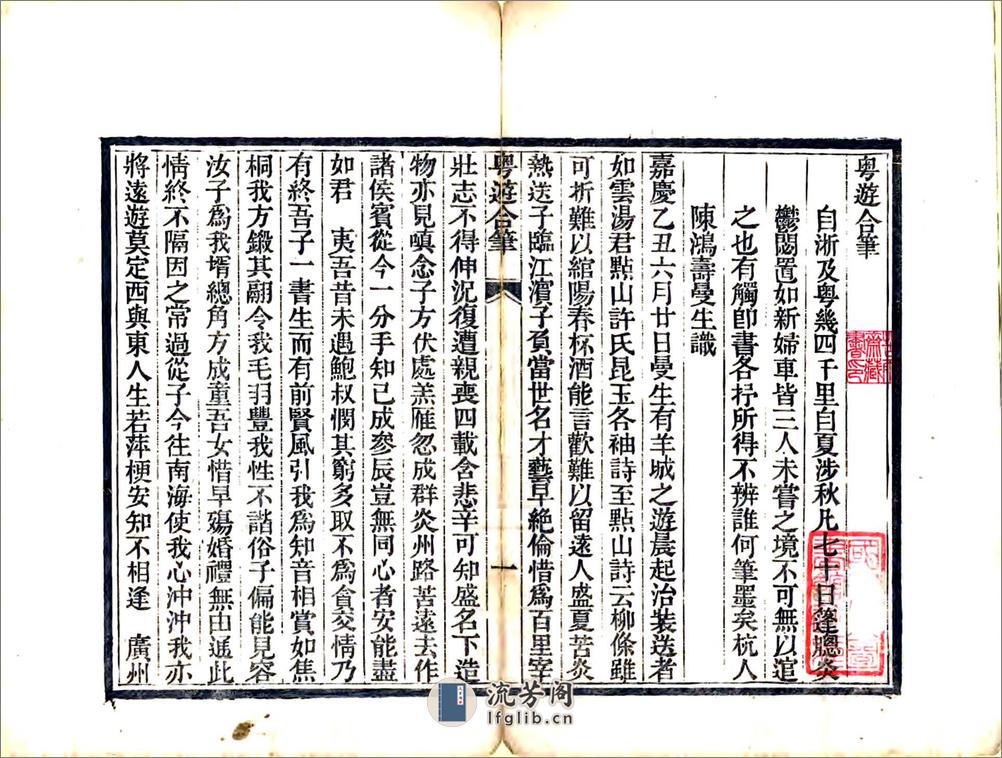 粵遊合筆
自淛及粵幾四千里自夏涉秋凡七十日篷牕炎
鬱閟置如新婦車皆三人未嘗之境不可無以諠
之也有觸卽書各抒所得不辨誰何筆墨矣杭人
陳鴻壽曼生識
嘉慶乙丑六月廿日曼生有羊城之遊晨起治裝送者
如雲湯君點山許氏昆玉各袖詩至點山詩云柳條雖
可折難以綰陽春杯酒能言歡難以留遠人盛夏苦炎
熱送子臨江濱子負當世名才藝早絕倫惜爲百里宰
粵遊合筆
一
壯志不得伸況復遭親喪四載含悲辛可知盛名下造
物亦見嗔念子方伏處羔雁忽成群炎州路苦遠去作
諸侯賓從今一分手知已成參辰豈無同心者安能盡
如君 夷吾昔未遇鮑叔憫其窮多取不爲貪交情乃
有終吾子一書生而有前賢風引我爲知音相賞如焦
桐我方鎩其翮令我毛羽豐我性不諧俗子偏能見容
汝子爲我壻總角方成童吾女惜早殤婚禮無由通此
情終不隔因之常過從子今往南海使我心沖沖我亦
將遠遊莫定西與東人生若萍梗安知不相逢 廣州
流芳阁
lfglib.cn